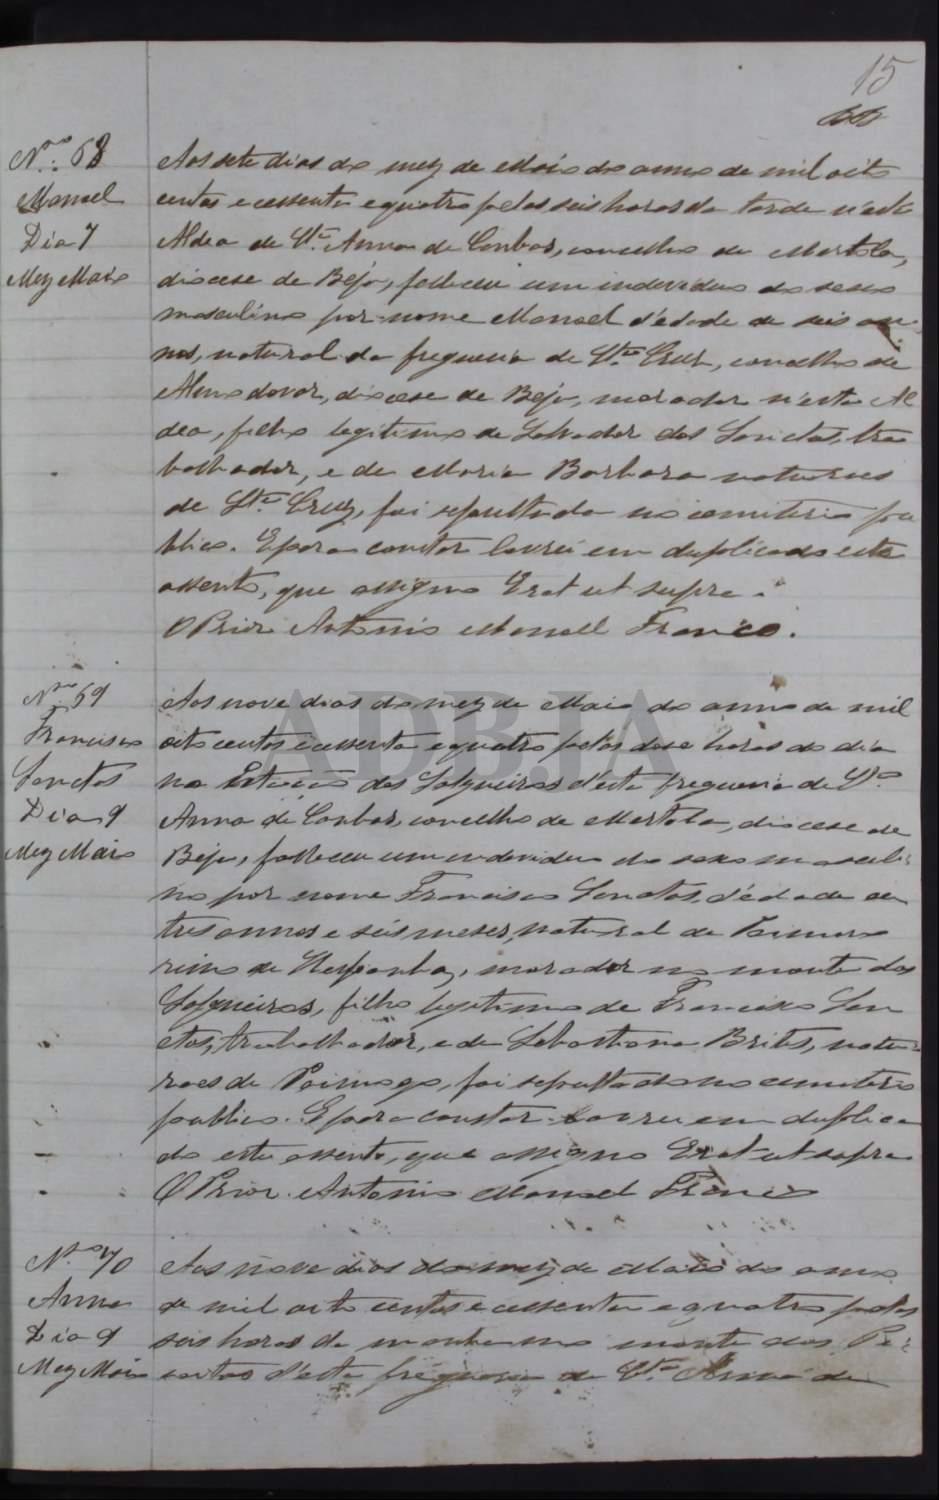 15
N.º 68
Manoel
Dia 7
Mez Maio
Aos sete dias do mez de Maio do anno de mil oito
centos e cessenta e quatro pelas seis horas da tarde n'esta
Aldea de St.ª Anna de Cambas, concelho de Mertola,
diocese de Beja, falleceu um individuo do sexo
masculino por nome Manoel d'edade de seis an
nos, natural da freguezia de St.ª Cruz, concelho de
Almodovar, diocese de Beja, morador n'esta Al
dea, filho legitimo de Salvador dos Sanctos, tra
balhador, e de Maria Barbara naturaes
de St.ª Cruz, foi sepultado no cemiterio pu
blico. E para constar lavrei em duplicado este
assento, que assigno Erat ut supra
O Prior Antonio Manoel Franco.
N.º 69
Francisco
Sanctos
Dia 9
Mez Maio
Aos nove dias do mez de Maio do anno de mil
oito centos e cessenta e quatro pelas dose horas do dia
na Estação dos Salgueiros d'esta freguezia de St.ª
Anna de Cambas, concelho de Mertola, diocese de
Beja, falleceu um individuo do sexo masculi
no por nome Francisco Sanctos, d'edade de
tres annos e seis meses, natural de
reino de Hespanha, morador no monte dos
Salgueiros, filho legitimo de Francisco San
ctos, trabalhador, e de Sebastiana Brites, natu
raes de foi sepultado no cemiterio
publico. E para constar lavrei em duplica
do este assento, que assigno Erat ut supra
O Prior Antonio Manoel Franco
N.º 70
Anna
Dia 9
Mez Maio
Aos nove dias do mez de Maio do anno
de mil oito centos e cessenta e quatro pelas
seis horas da manhã no monte dos
d'esta freguezia de St.ª Anna de
ADBJA